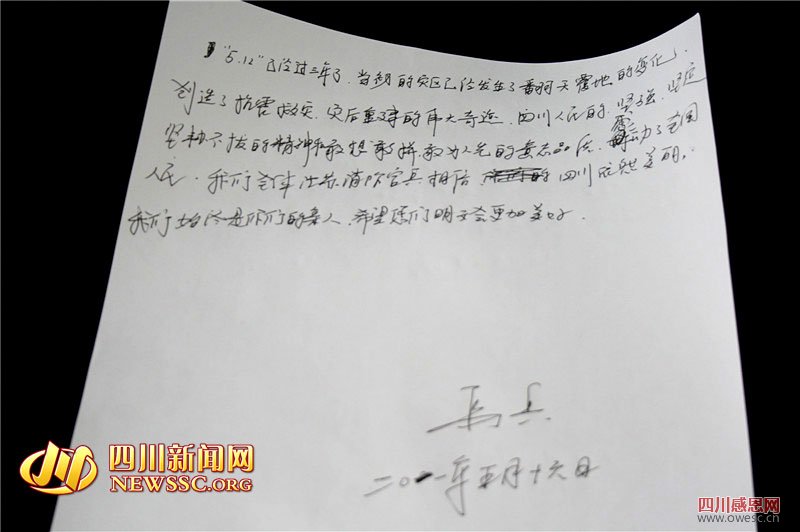 "5.12"已经过三年了，当初的灾区已经发生了翻天覆地的变化，
创造了抗震救灾、灾后重建的伟大奇迹，四川人民的坚强、坚定
坚韧不拔的精神和敢想敢拼敢为人先的意志品质，震动了全国
人民。我们全体江苏消防官兵相信，四川依然美丽，
我们始终是你们的亲人，希望你们明天会更加美好。
马兵
二〇一一年五月十六日
四川新闻网
NEWSSC.ORG
四川感恩网
www.owesc.cn